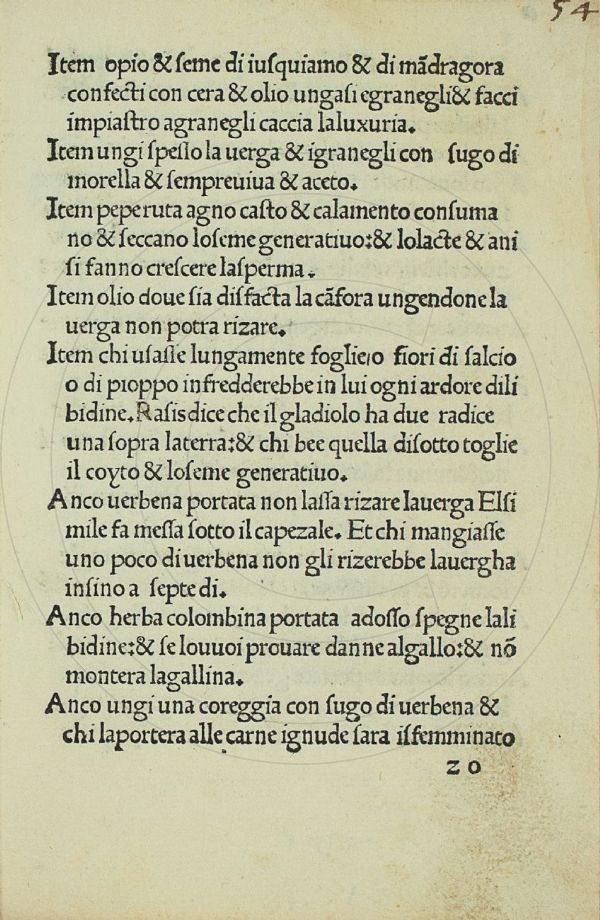 54
Item opio & ſeme di iuſquiamo & di mādragora
confecti con cera & olio ungaſi egranegli& facci
impiaſtro agranegli caccia laluxuria.
Item ungi ſpeſſo la uerga & igranegli con ſugo di
morella & ſempreuiua & aceto.
Item pepe ruta agno caſto & calamento conſuma
no & ſeccano loſeme generatiuo:& lolacte & ani
ſi fanno creſcere laſperma.
Item olio doue ſia diſfacta la cāfora ungendone la
uerga non potra rizare.
Item chi uſaſſe lungamente foglie,o fiori di ſalcio
o di pioppo infredderebbe in lui ogni ardore dili
bidine.Raſis dice che il gladiolo ha due radice
una ſopra laterra:& chi bee quella diſotto toglie
il coyto & loſeme generatiuo.
Anco uerbena portata non laſſa rizare lauerga Elſi
mile fa meſſa ſotto il capezale. Et chi mangiaſſe
uno poco di uerbena non gli rizerebbe lauergha
inſino a ſepte di.
Anco herba colombina portata adoſſo ſpegne lali
bidine:& ſe louuoi prouare danne algallo:& nō
montera lagallina.
Anco ungi una coreggia con ſugo di uerbena &
chi laportera alle carne ignude ſara iſfemminato
zo